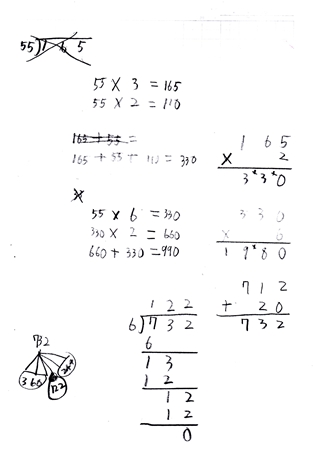 55)165
55 × 3 = 165
55 × 2 = 110
165 + 55 =
165 + 55 + 110 = 330
165
× 2
330
55 × 6 = 330
330 × 2 = 660
660 + 330 = 990
330
× 6
1980
712
+ 20
732
122
6)732
6
13
12
12
12
0
732
360
122